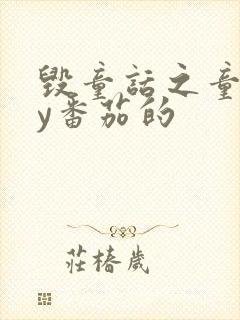 毁童话之童
y番茄的
莊椿歲